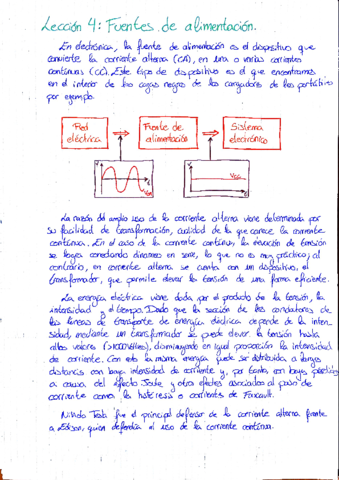 Lección 4: Fuentes de alimentación.
En electrónica, la fuente de alimentación es el dispositivo que
convierte la corriente alterna (CA), en una o varias corrientes
continuas (CC). Este tipo de dispositivo es el que encontramos
en el interior de las cajas negras de los cargadores de los portátiles
por ejemplo.
Red
eléctrica
Fuente de
alimentación
Sistema
electrónico
V
t
VCA
V
VCC
t
La razón del amplio uso de la corriente alterna viene determinada por
su facilidad de transformación, cualidad de la que carece la corriente
continua. En el caso de la corriente continua, la elevación de tensión
se logra conectando dinamos en serie, lo que no es muy práctico; al
contrario, en corriente alterna se cuenta con un dispositivo, el
transformador, que permite elevar la tensión de una forma eficiente.
La energía eléctrica viene dada por el producto de la tensión, la
intensidad y el tiempo. Dado que la sección de los conductores de
las líneas de transporte de energía eléctrica depende de la inten-
sidad, mediante un transformador se puede elevar la tensión hasta
altos valores, disminuyendo en igual proporción la intensidad
de corriente. Con esto la misma energía puede ser distribuida a largas
distancias con bajas intensidades de corriente y, por tanto, con bajas pérdidas
a causa del efecto Joule y otros efectos asociados al paso de
corriente como la histéresis o corrientes de Foucault.
Nikola Tesla fue el principal defensor de la corriente alterna frente
a Edison, quien defendía el uso de la corriente continua.